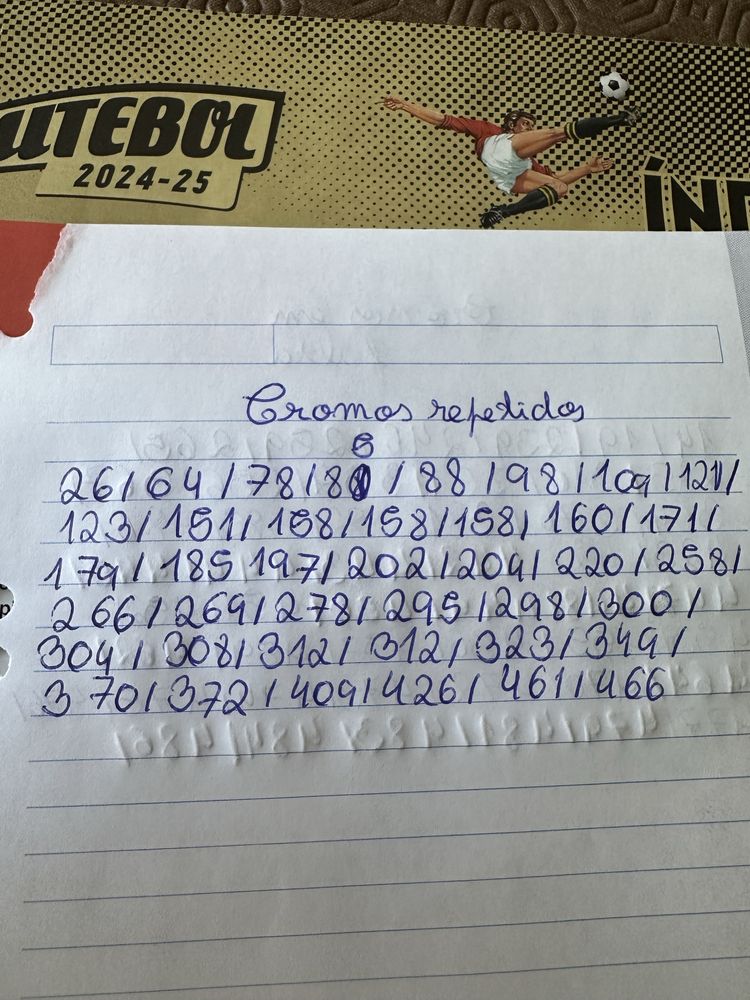 UTEBOL
2024-25
ÍND
Cromos repetidos
6
26/64/78/80/88/98/109/121/
123/151/158/158/158/160/171/
179/185 197/202/204/220/258/
266/269/278/295/298/300/
304/308/312/312/323/349/
370/372/409/426/461/466